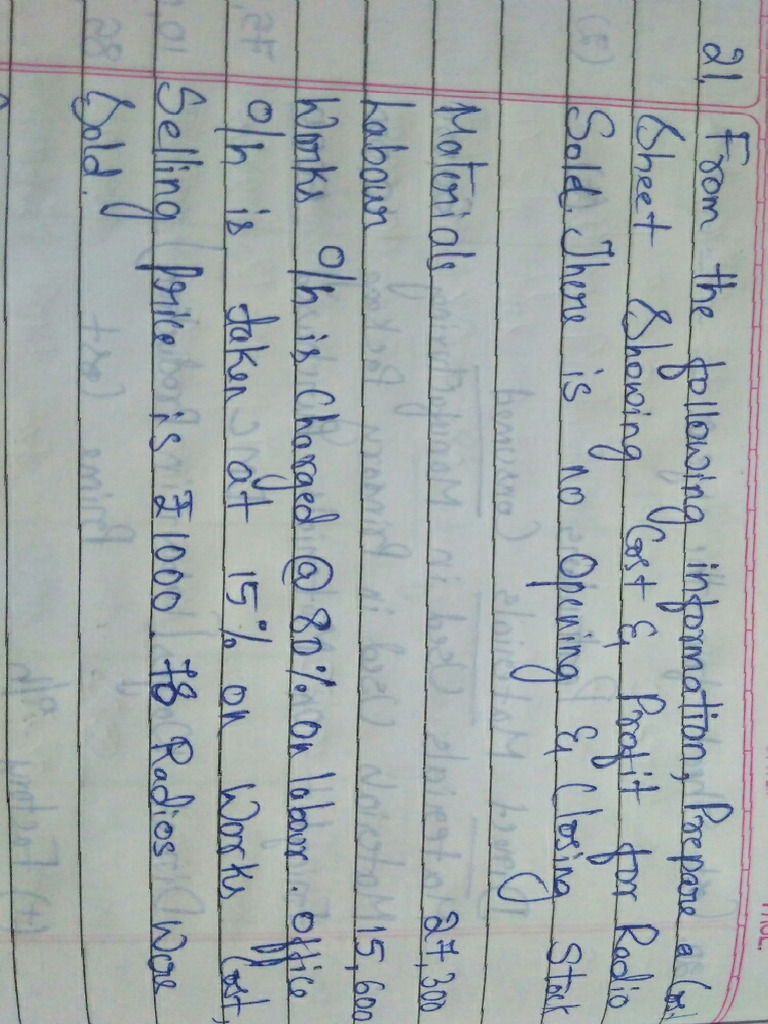 21. From the following information, Prepare a Cost
Sheet Showing Cost & Profit for Radio
Sold. There is no Opening & Closing Stock
Materials 27,300
Labour 15,600
Works O/h is Charged @ 80% on labour. Office
O/h is taken at 15% on Works Cost,
Selling price is ₹ 1000. 78 Radios Were
Sold.